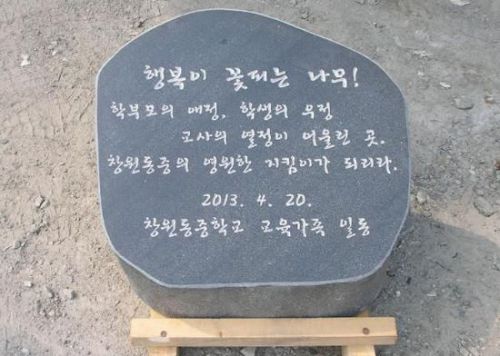 행복이 꽃피는 나무!
학부모의 애정, 학생의 우정
교사의 열정이 어울린 곳.
창원동중의 영원한 지킴이가 되리라.
2013. 4. 20.
창원동중학교 교육가족 일동